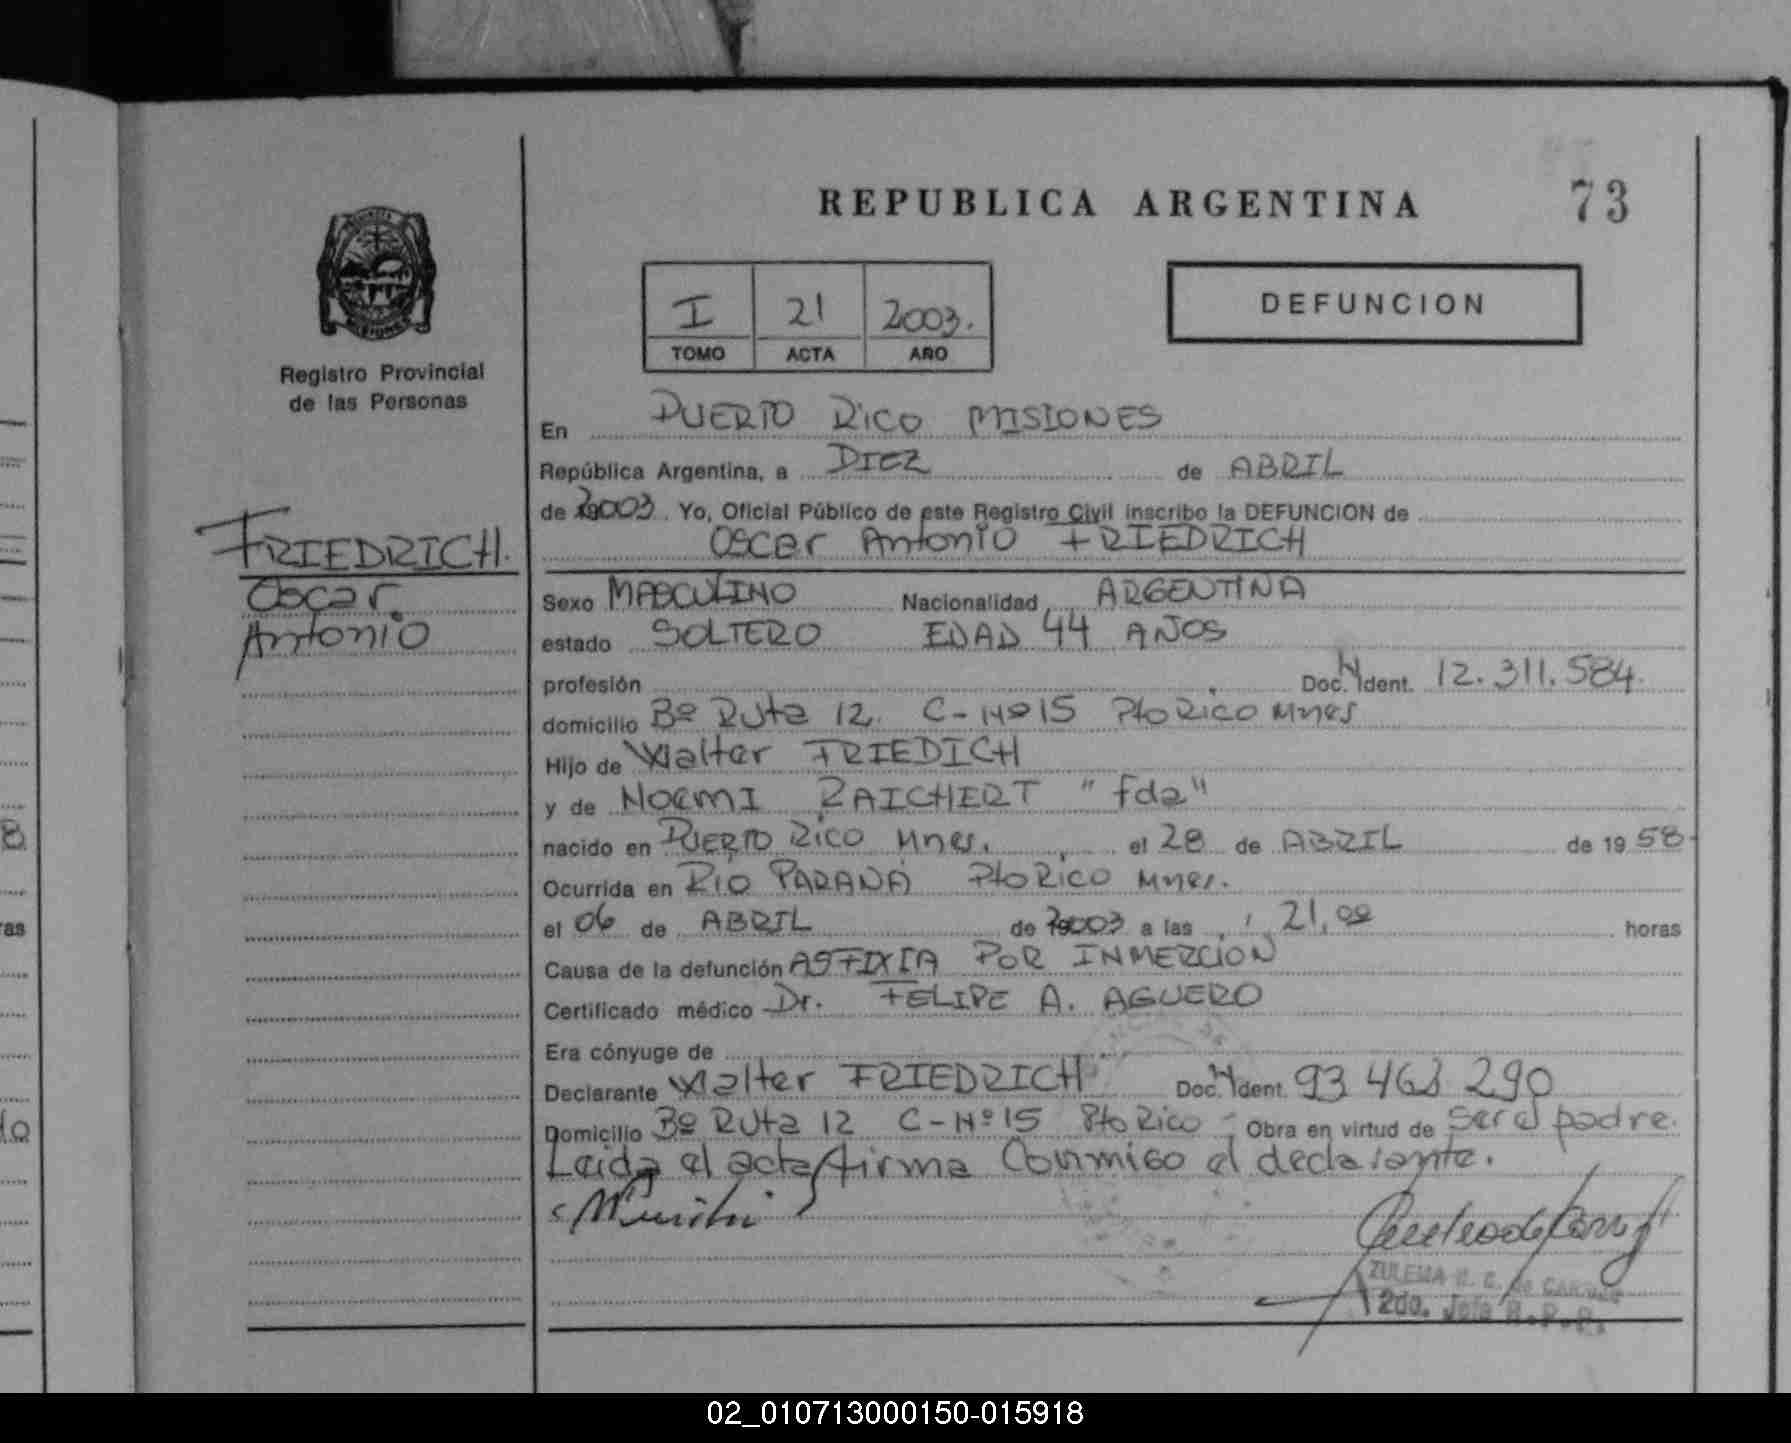 REPUBLICA ARGENTINA
73
MISIONES
Registro Provincial
de las Personas
I 21 2003.
TOMO ACTA AÑO
DEFUNCION
FRIEDRICH.
Oscar
Antonio
En PUERTO RICO MISIONES
República Argentina, a DIEZ de ABRIL
de 2003 Yo, Oficial Público de este Registro Civil inscribo la DEFUNCION de
Oscar Antonio FRIEDRICH
Sexo MASCULINO Nacionalidad ARGENTINA
estado SOLTERO EDAD 44 AÑOS
profesión Doc. N Ident. 12.311.584.
domicilio Bº Ruta 12. C-Nº15 Pto Rico Mnes
Hijo de Walter FRIEDICH
y de NOEMI RAICHERT "fda"
nacido en PUERTO RICO Mnes. el 28 de ABRIL de 19 58
Ocurrida en RIO PARANA Pto Rico Mnes.
el 06 de ABRIL de 2003 a las 21,00 horas
Causa de la defunción ASFIXIA POR INMERCION
Certificado médico Dr. FELIPE A. AGUERO
Era cónyuge de
Declarante Walter FRIEDRICH Doc. N Ident. 93 463 290
Domicilio Bº Ruta 12 C-Nº15 Pto Rico - Obra en virtud de ser el padre.
Leida el acta firma Conmigo el declarante.
ZULEMA de
2do. Jefe R.P.P.
02_010713000150-015918